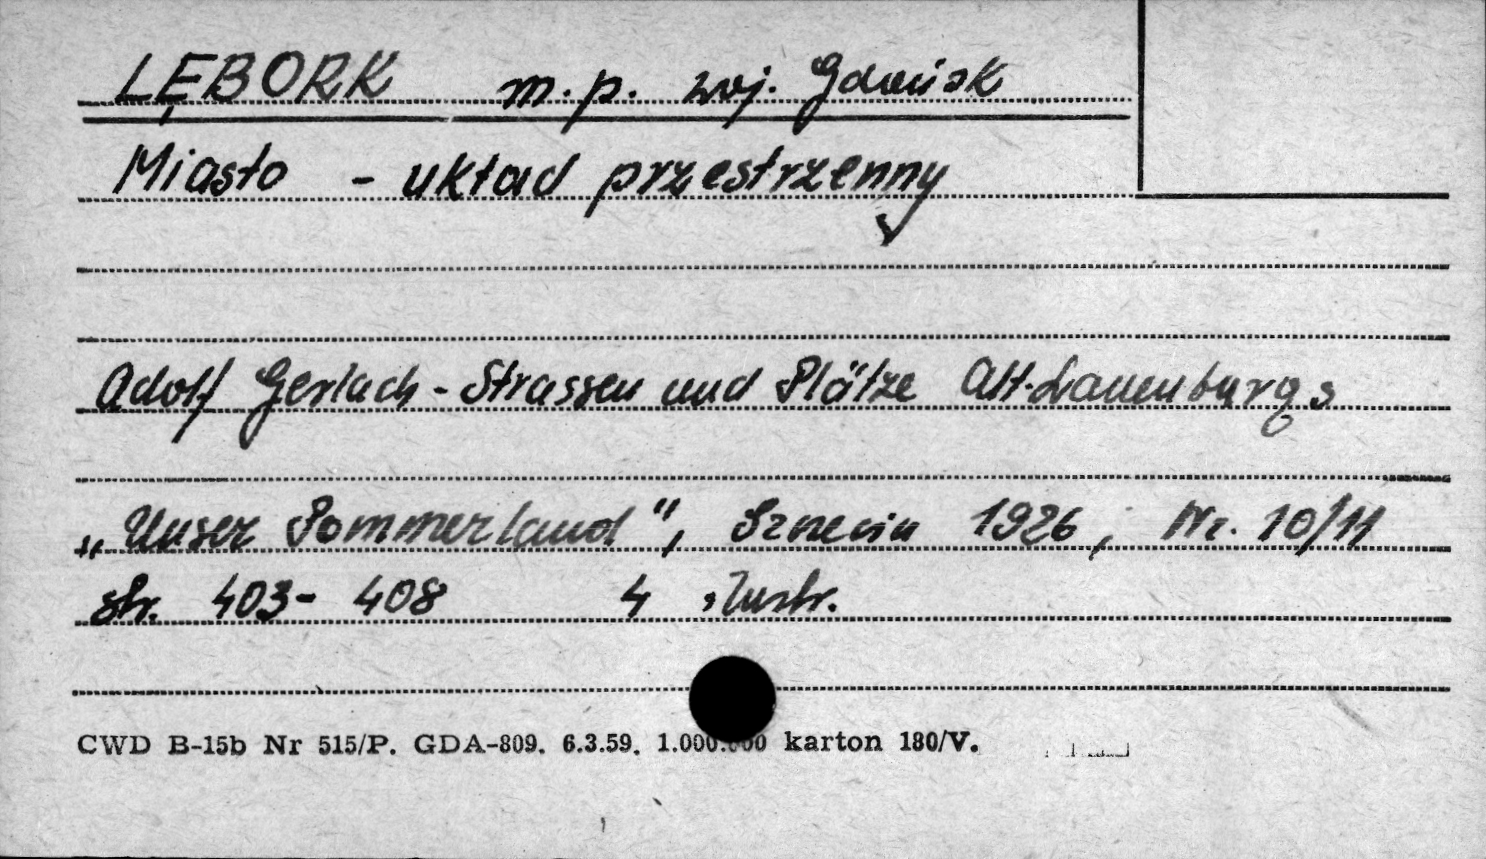 LĘBORK m.p. woj. Gdańsk
Miasto - układ przestrzenny
Adolf Gerlach - Strassen und Plätze Alt-Lauenburgs
„Unser Pommerland", Szczecin 1926, Nr. 10/11
str. 403-408 4 ilustr.
CWD B-15b Nr 515/P. GDA-809. 6.3.59. 1.000.000 karton 180/V.